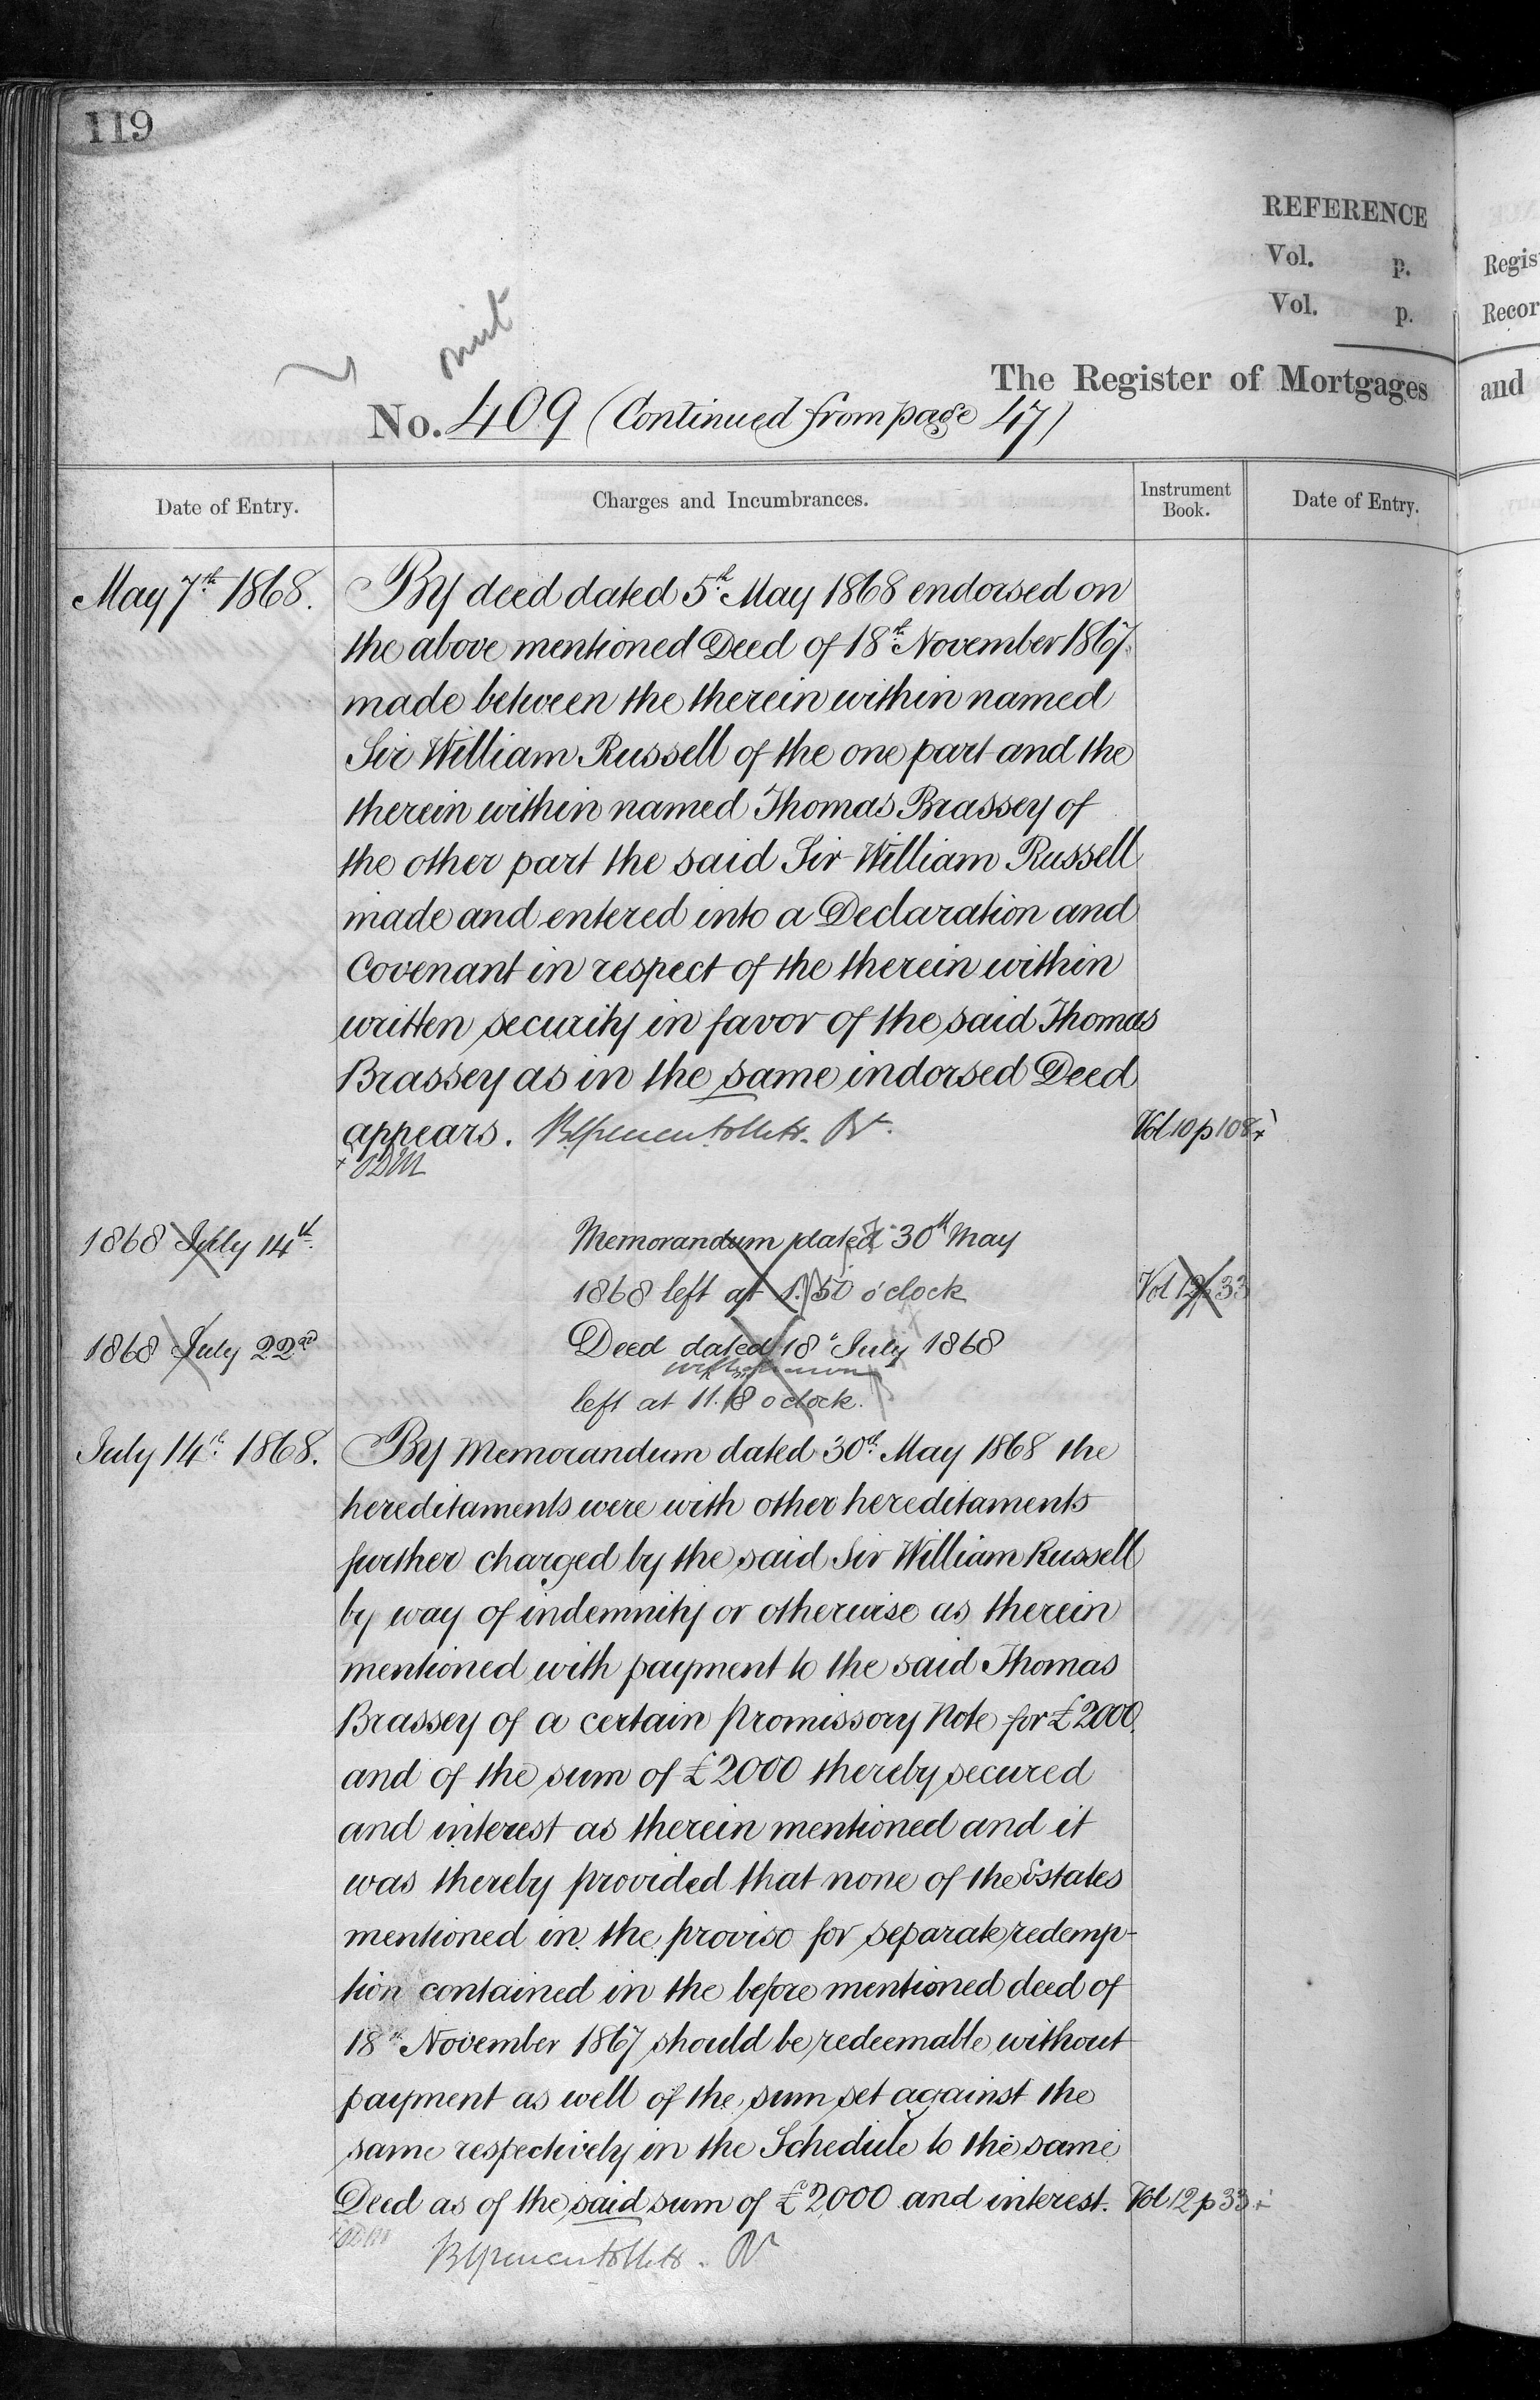 119
REFERENCE
Vol. p.
Vol. p.
omit
The Register of Mortgages
No. 409 (Continued from page 47)
Date of Entry. Charges and Incumbrances. Instrument Book. Date of Entry.
May 7th 1868. By deed dated 5th May 1868 endorsed on
the above mentioned Deed of 18th November 1867
made between the therein within named
Sir William Russell of the one part and the
therein within named Thomas Brassey of
the other part the said Sir William Russell
made and entered into a Declaration and
Covenant in respect of the therein within
written security in favor of the said Thomas
Brassey as in the same indorsed Deed
appears. Vol 10 p 108
1868 July 14th Memorandum dated 30th May
1868 left at 1.50 o'clock Vol 12 p 33
1868 July 22nd Deed dated 18th July 1868
left at 11.18 o'clock.
July 14th 1868. By Memorandum dated 30th May 1868 the
hereditaments were with other hereditaments
further charged by the said Sir William Russell
by way of indemnity or otherwise as therein
mentioned with payment to the said Thomas
Brassey of a certain promissory Note for £2000
and of the sum of £2000 thereby secured
and interest as therein mentioned and it
was thereby provided that none of the Estates
mentioned in the proviso for separate redemp-
tion contained in the before mentioned deed of
18th November 1867 should be redeemable without
payment as well of the sum set against the
same respectively in the Schedule to the same
Deed as of the said sum of £2000 and interest. Vol 12 p 33
Regis
Recor
and